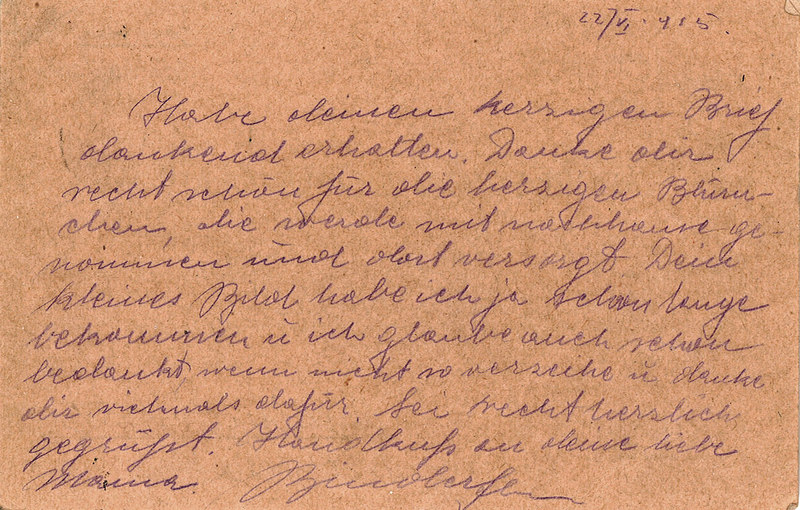 22/VI. 915.
Habe deinen herzigen Brief
dankend erhalten. Danke dir
recht schön für die herzigen Blüm-
chen, die werde mit nachhause ge-
nommen und dort versorgt. Dein
kleines Bild habe ich ja schon lange
bekommen u ich glaube auch schon
bedankt, wenn nicht so verzeihe u danke
dir vielmals dafür. Sei recht herzlich
gegrüßt. Handkuß an deine liebe
Mama.